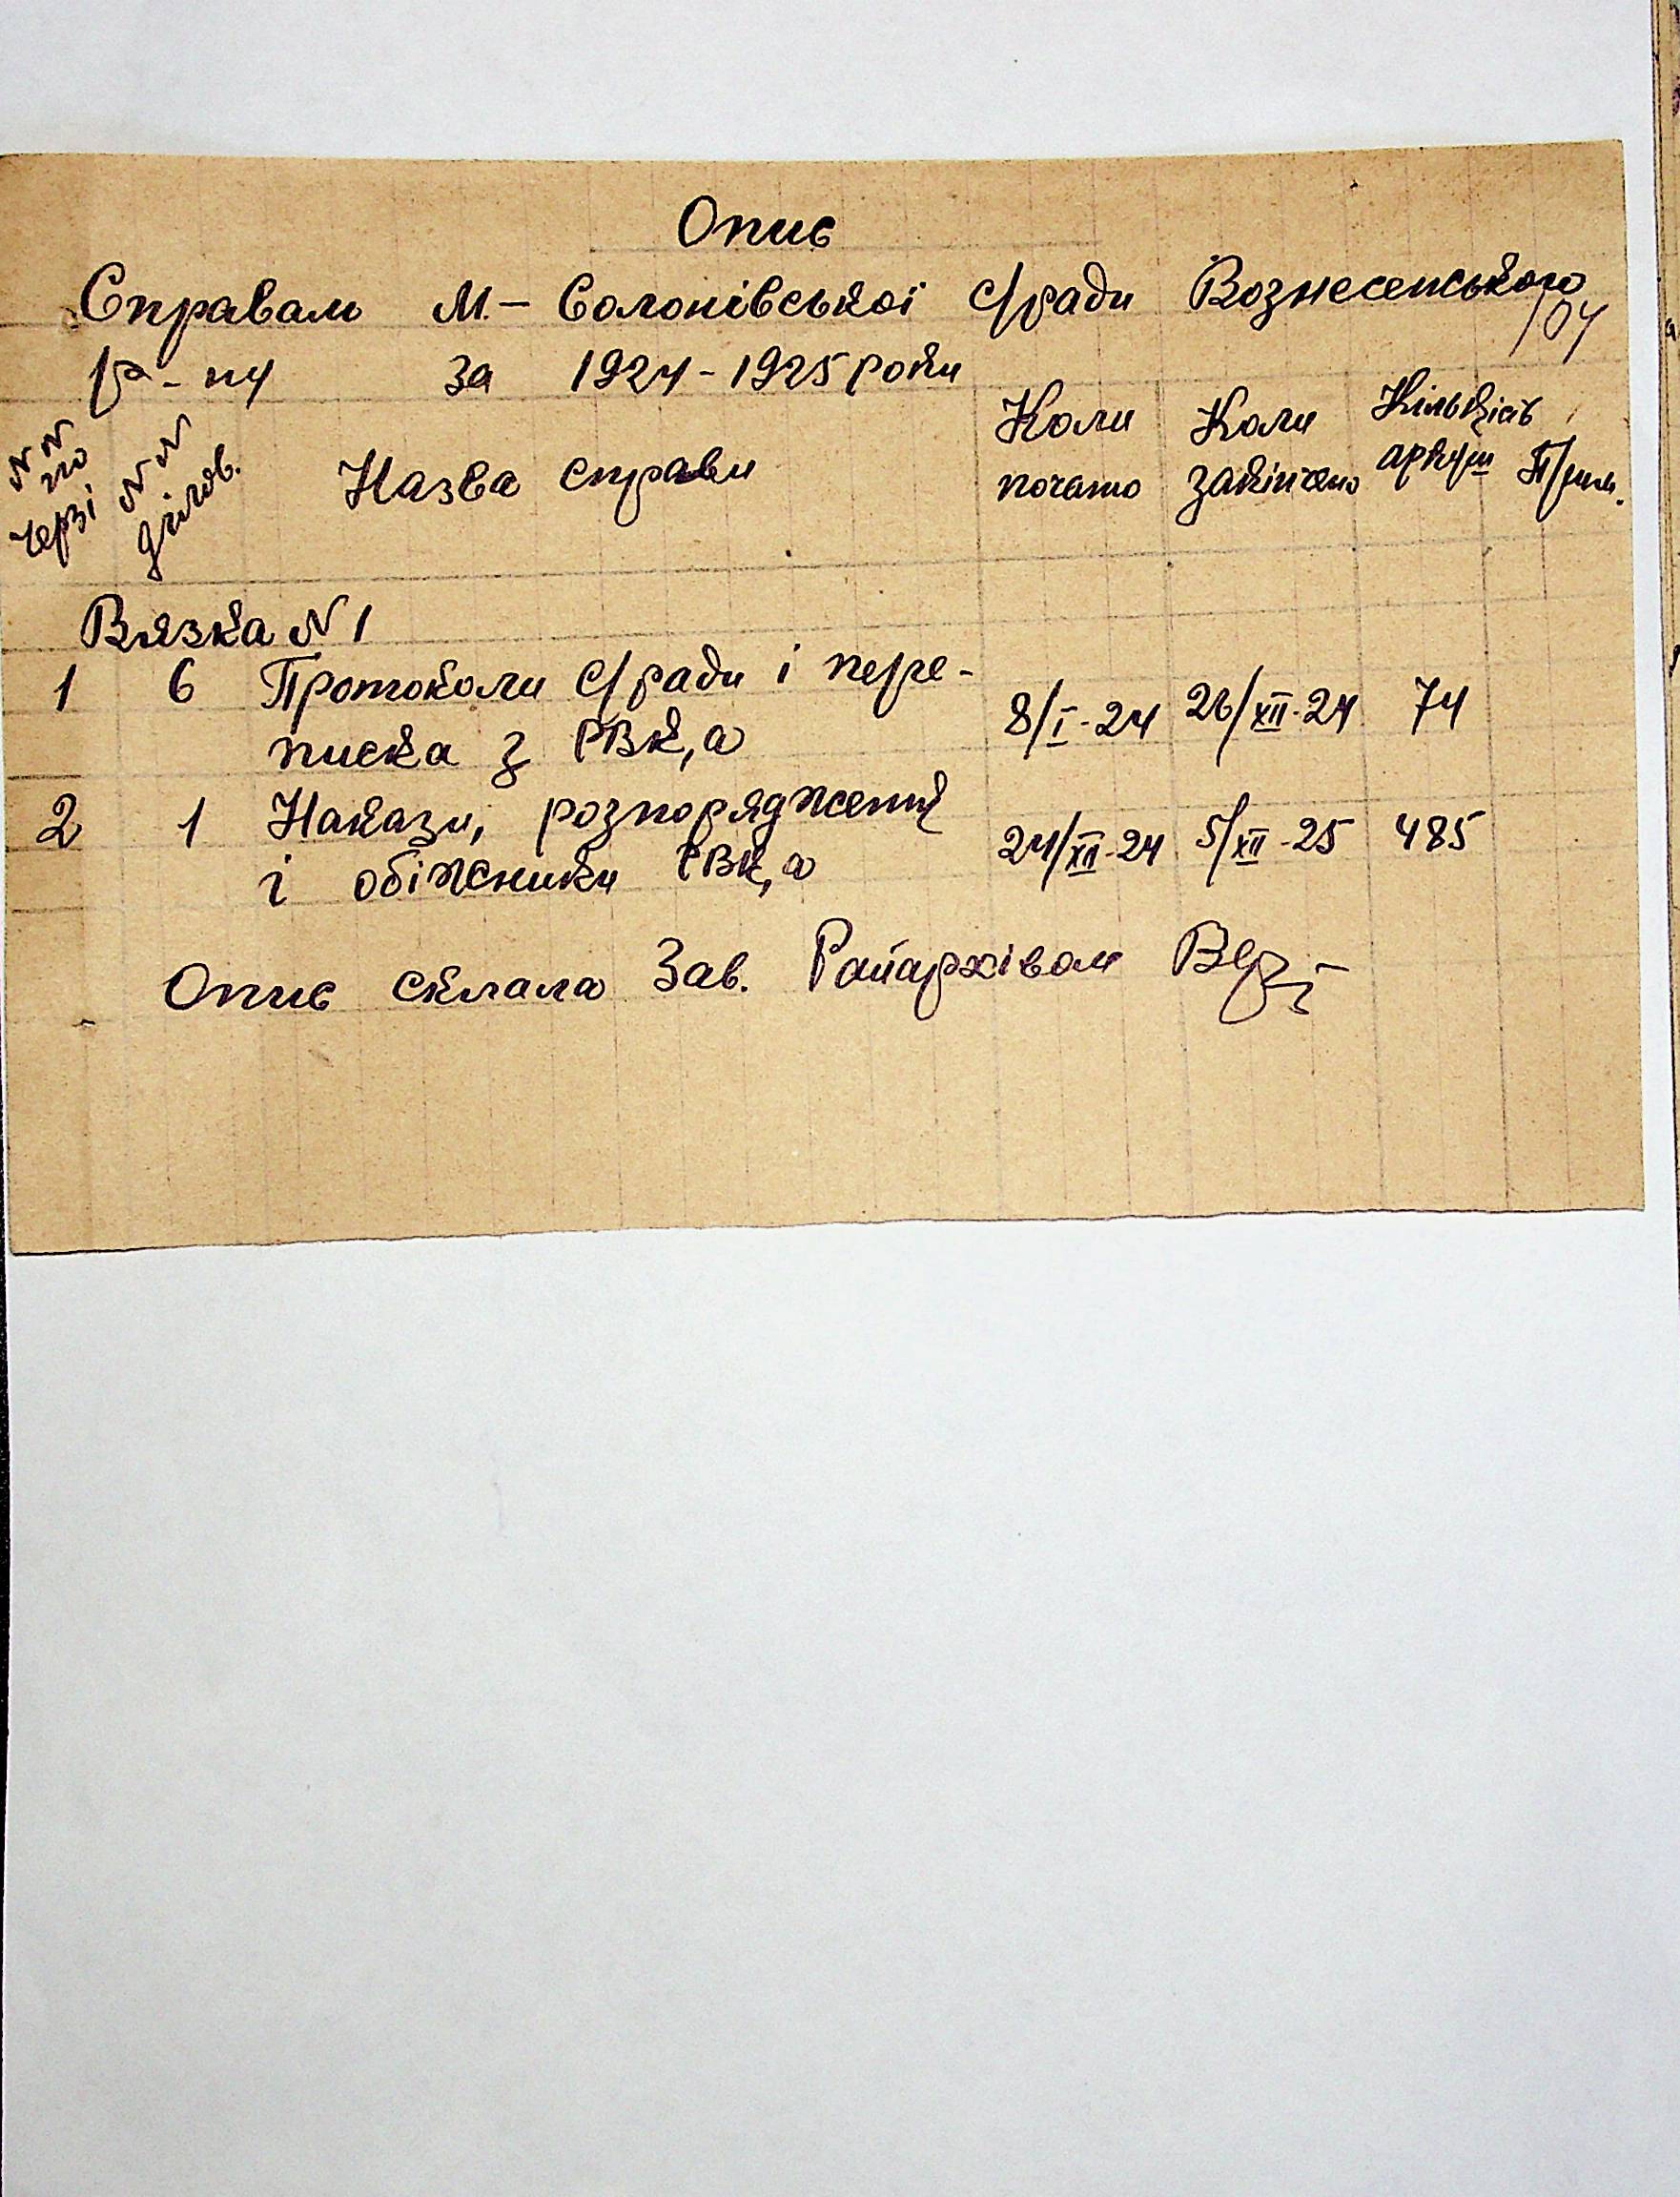 Опис
Справам М.- Солонівської с/ради Вознесенського
104
Р-ну за 1924-1925 роки
NN по черзі
NN ділов.
Назва справи
Коли почато
Коли закінчено
Кількість аркуш
Прим.
Вязка N 1
1 6 Протоколи с/ради і пере-
писка з РВК,а 8/I-24 26/XII-24 74
2 1 Накази, розпорядження
і обіжники РВК,а 24/XII-24 5/XII-25 485
Опис склала Зав. Райархівом